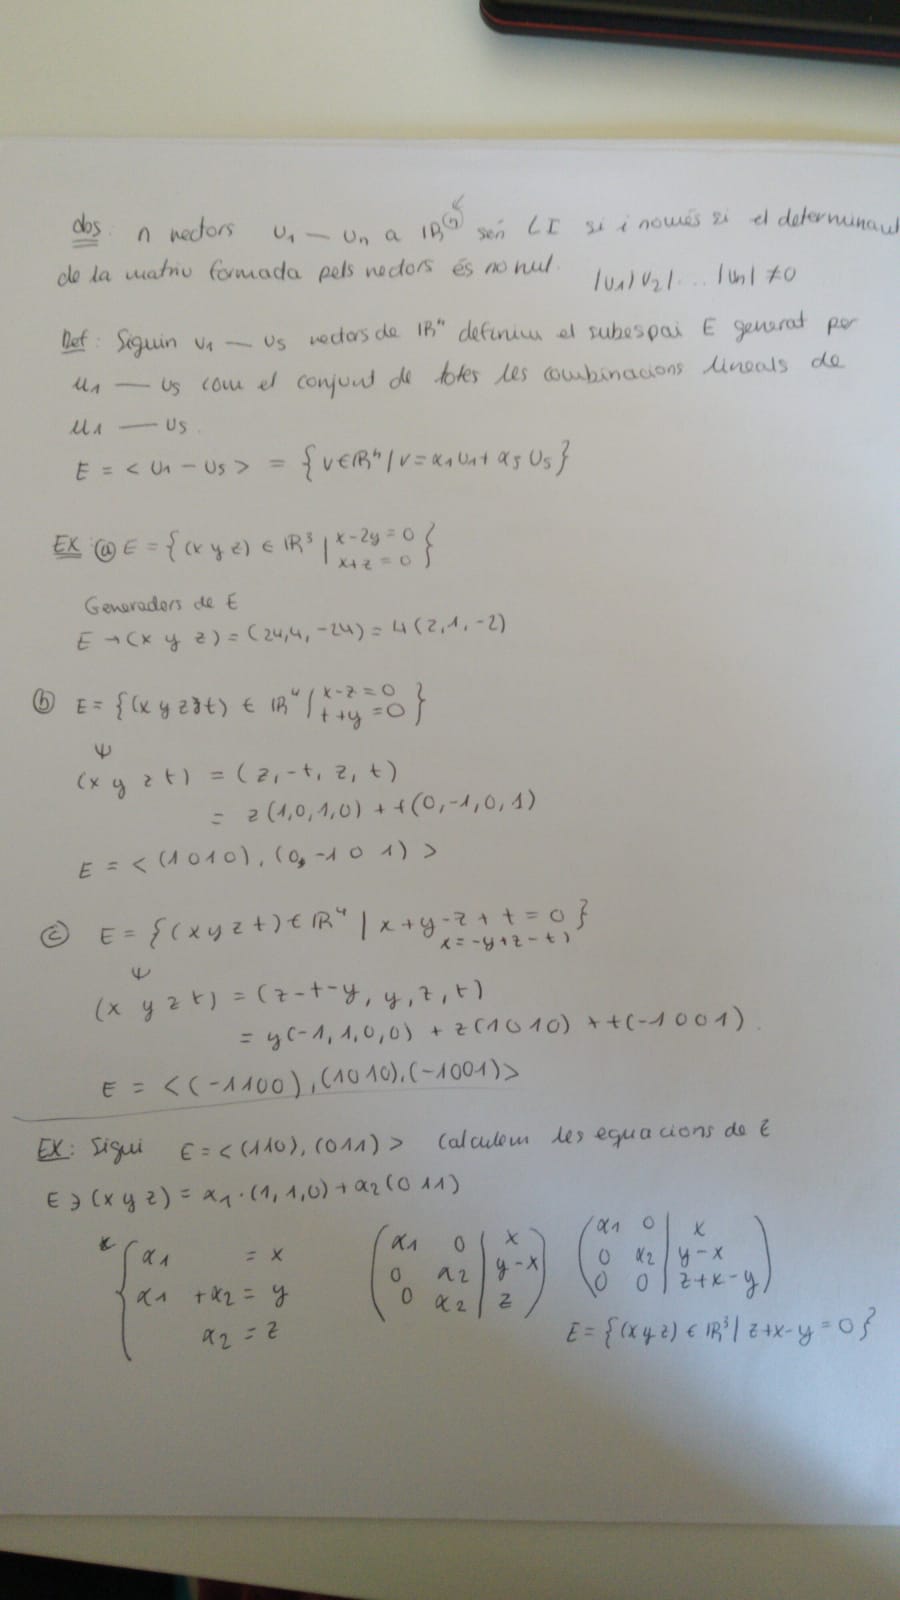 obs: n vectors u1 — un a IR(n) són LI si i només si el determinant
de la matriu formada pels vectors és no nul. |u1|u2|...|un| ≠0
Def: Siguin u1 — us vectors de IRn definim el subespai E generat per
u1 — us com el conjunt de totes les combinacions lineals de
u1 — us.
E = < u1 - us > = {v∈IRn / v = α1u1+ αsus}
EX: ⓐ E = {(x y z) ∈ IR³ | x-2y=0
x+z=0 }
Generadors de E
E → (x y z) = (24,4,-24) = 4(2,1,-2)
ⓑ E = {(x y z t) ∈ IR⁴ / x-z=0
t+y=0 }
ψ
(x y z t) = (z,-t, z, t)
= z(1,0,1,0) + t(0,-1,0,1)
E = < (1010), (0,-1 0 1) >
ⓒ E = {(x y z t) ∈ IR⁴ | x+y-z+t=0}
x=-y+z-t)
ψ
(x y z t) = (z-t-y, y, z, t)
= y(-1,1,0,0) + z(1010) + t(-1001).
E = <(-1100),(1010),(-1001)>
EX: Sigui E = <(110),(011)> Calculem les equacions de E
E ∋ (x y z) = α1·(1,1,0)+α2(011)
* { α1 = x
α1 +α2 = y
α2 = z
( α1 0 | x
0 α2 | y-x
0 α2 | z )
( α1 0 | x
0 α2 | y-x
0 0 | z+x-y )
E = {(xyz) ∈ IR³ | z+x-y=0}